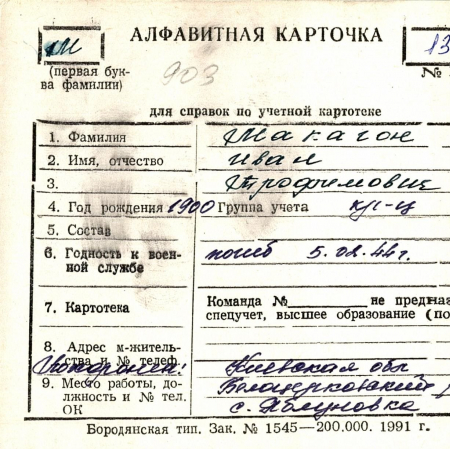 М АЛФАВИТНАЯ КАРТОЧКА 13
(первая бук-
ва фамилии) 903 №
для справок по учетной картотеке
1. Фамилия Макагон
2. Имя, отчество Иван
3. Трофимович
4. Год рождения 1900 Группа учета кр-ц
5. Состав
6. Годность к воен-
ной службе погиб 5.02.44 г.
7. Картотека Команда № не предназ
спецучет, высшее образование (по
8. Адрес м-житель-
ства и № телеф.
Похоронен: Киевская обл
9. Место работы, до- Белоцерковский
лжность и № тел. с. Яблуновка
ОК
Бородянская тип. Зак. № 1545—200.000. 1991 г.